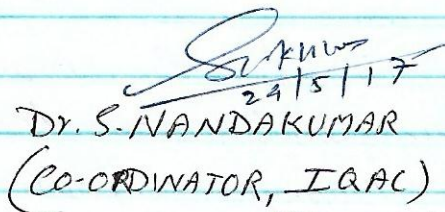 24/5/17
Dr. S. NANDAKUMAR
(CO-ORDINATOR, IQAC)